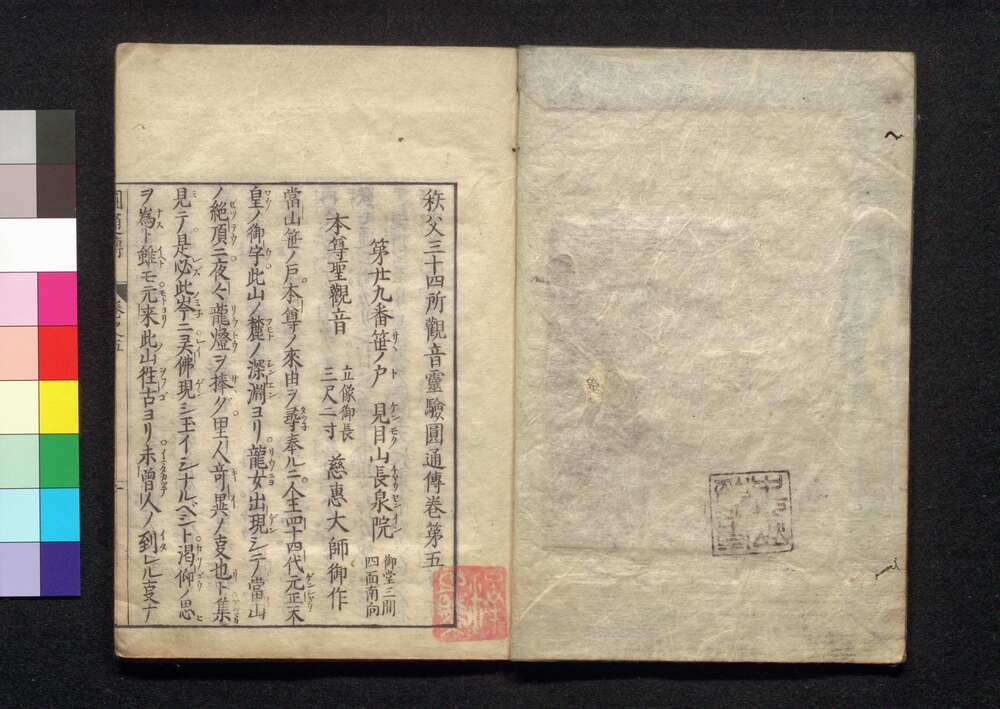 秩父三十四所觀音靈驗圓通傳卷第五
第廿九番笹ノ戸 見目山長泉院 御堂三間四面南向
本尊聖觀音 立像御長三尺二寸 慈惠大師御作
當山笹ノ戸本尊ノ來由ヲ尋奉ルニ人王四十四代元正天
皇ノ御宇此山ノ麓ノ深淵ヨリ龍女出現シテノ當山
ノ絶頂ニ夜々龍燈ヲ捧グ里人竒異ノ叓也ト集
見テ是必此岺ニ佛現シ玉イシナルベシト渇仰ノ思
ヲ爲ト雖モ元來此山徃古ヨリ未曽人ノ到レル叓ナ